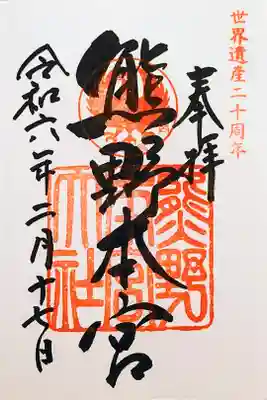 世界遺産二十周年
奉拝
熊野本宮
熊野本宮大社
令和六年二月十七日